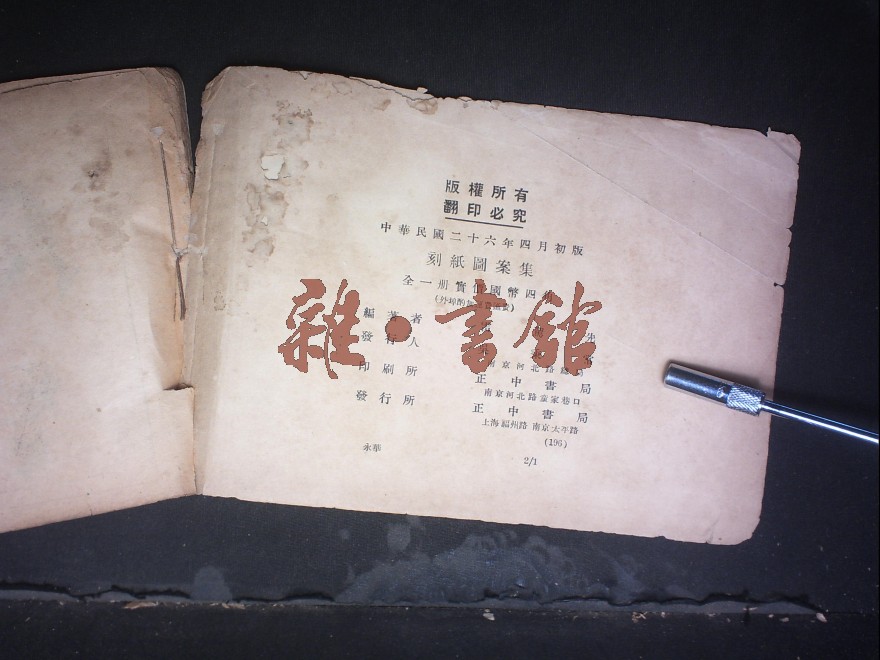 版權所有
翻印必究
中華民國二十六年四月初版
刻紙圖案集
全一册實價國幣四
編著者
發行人
南京河北路
印刷所 正中書局
南京河北路童家巷口
發行所 正中書局
上海福州路 南京太平路
(196)
永華 2/1
雜·書館